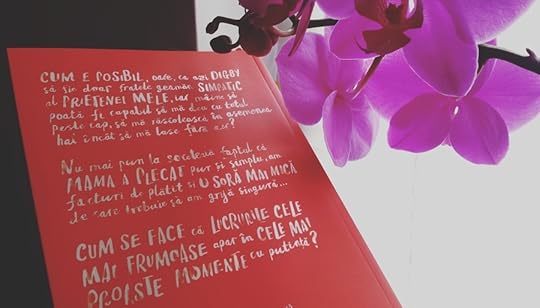 CUM E POSIBIL, oare, ca azi DIGBY
să fie doar fratele geamăn SIMPATIC
al PRIETENEI MELE, iar mâine să
poată fi capabil să mă dea cu totul
peste cap, să mă răscolească în asemenea
hal încât să mă lase fără aer?
Nu mai pun la socoteală faptul că
MAMA A PLECAT pur și simplu, am
facturi de plătit și O SORĂ MAI MICĂ
de care trebuie să am grijă singură...
CUM SE FACE că LUCRURILE CELE
MAI FRUMOASE apar în CELE MAI
PROASTE MOMENTE cu putință?